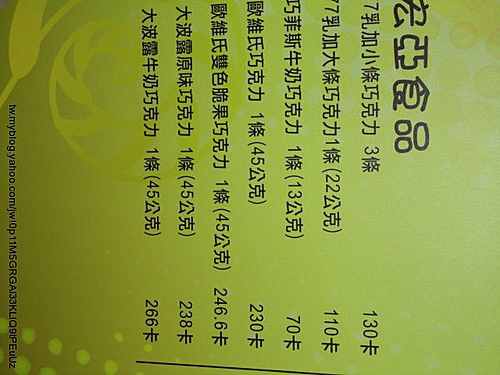 宏亞食品
7乳加小條巧克力 3條 130卡
77乳加大條巧克力1條 (22公克) 110卡
巧菲斯牛奶巧克力 1條 (13公克) 70卡
歐維氏巧克力 1條 (45公克) 230卡
歐維氏雙色脆果巧克力 1條 (45公克) 246.6卡
大波露原味巧克力 1條 (45公克) 238卡
大波露牛奶巧克力 1條 (45公克) 266卡